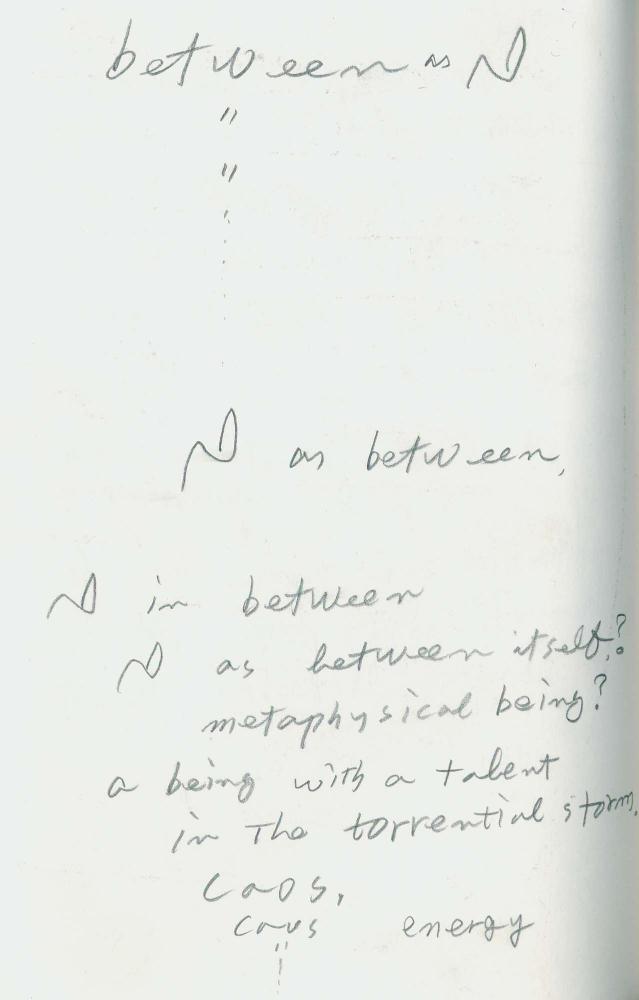 between as N
"
"
N as between,
N in between
N as between itself?
metaphysical being?
a being with a talent
in The torrential storm.
Caos,
caos energy
"